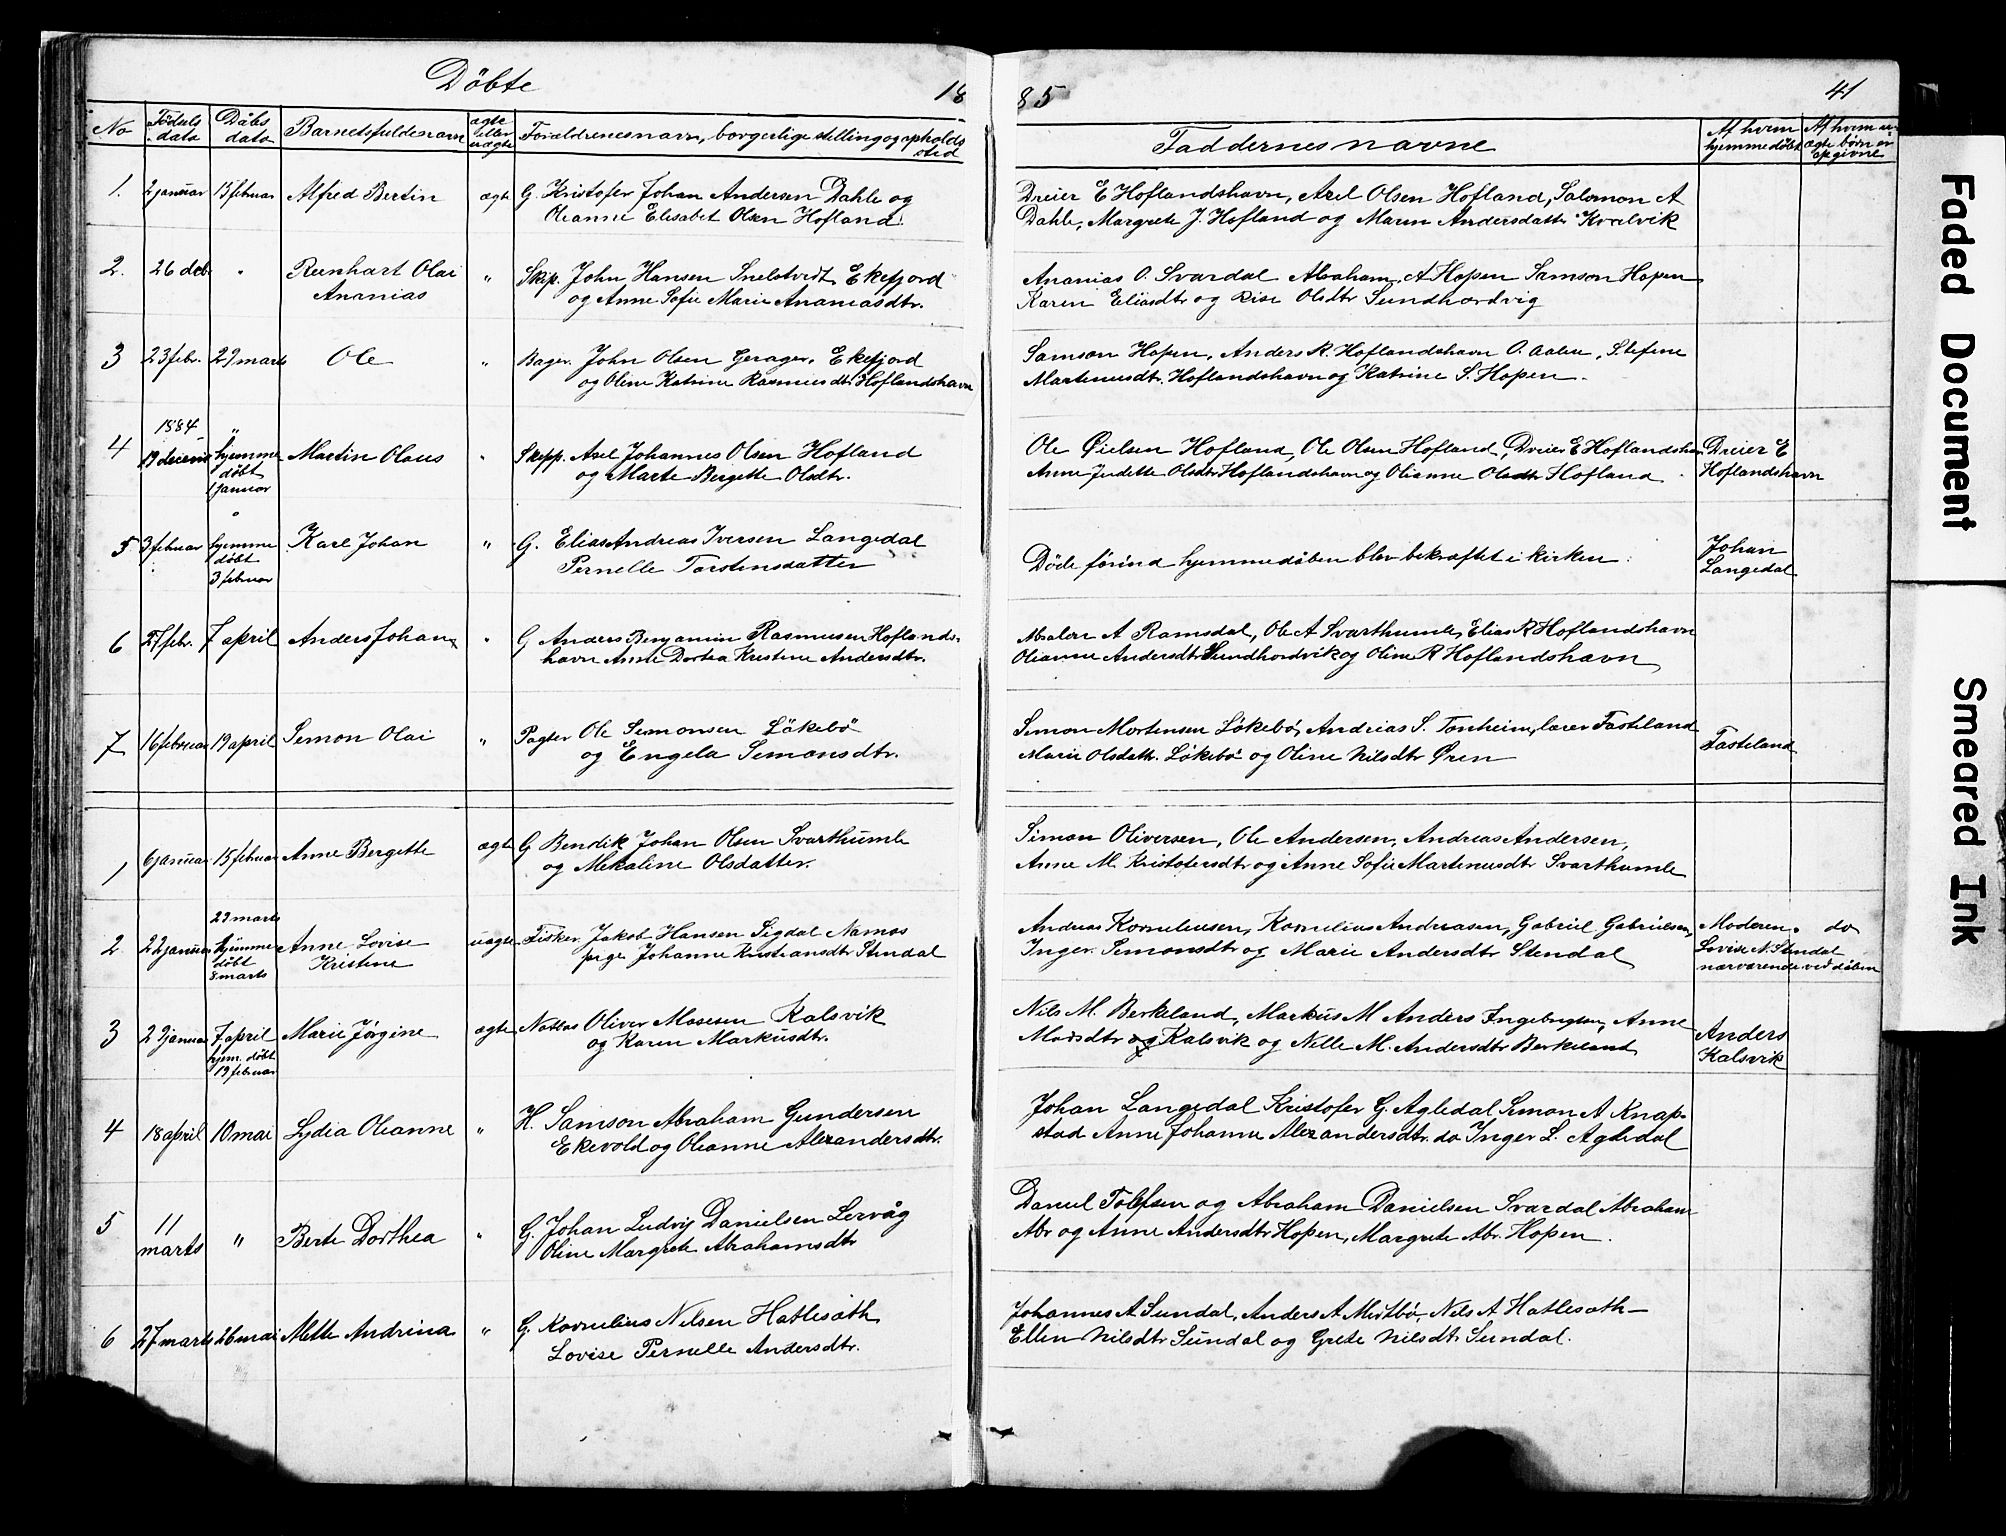 Döbte 18 85 41
No Födsels data Dåbs data Barnets fulde navn ægte eller uægte Forældrenes navn, borgerlige stilling og opholds sted Faddernes navne Af hvem hjemmedöbt Af hvem uægte börn er opgivne
1. 2 januar 15 februar Alfred Bertin ægte G. Kristofer Johan Andersen Dahle og Dreier E Hoflandshavn, Axel Olsen Hofland, Salomon A
Oleanne Elisabet Olsen Hofland. Dahle, Margrete J. Hofland og Maren Andersdattr Kvalvik
2. 26 deb " Reinhart Olai " Skip. John Hansen Ekefjord Ananias O. Svardal Abraham A Hopen Samson Hopen
Ananias og Anne Sofie Marie Ananiasdtr. Karen Eliasdtr og Olsdtr Sundhordvig
3 23 febr. 29 marts Ole " Bager. John Olsen Gerager. Ekefjord Samson Hopen, Anders R. Hoflandshavn O. Aalen, Stefine
og Oline Katrine Rasmusdtr. Hoflandshavn Martinusdtr. Hoflandshavn og Katrine S. Hopen.
1884 "
4 19 hjemme Martin Olaus " Skipp. Axel Johannes Olsen Hofland Ole Hofland, Ole Olsen Hofland, Dreier E Hoflandshavn Dreier E
döbt og Marte Bergette Olsdtr. Anne Judette Olsdtr Hoflandshavn og Olianne Olsdtr Hofland Hoflandshavn
1 januar
5 3 februar hjemme Karl Johan " G. Elias Andreas Iversen Langedal Johan
döbt Pernelle Torstensdatter Döde förind hjemmedåben blev bekræftet i kirken. Langedal
3 februar
6 27 febr. 7 april Anders Johan " G Anders Benjamin Rasmusen Hoflands- A Ramsdal, Ole A Svarthumle, Elias R Hoflandshavn
havn Anne Dortea Kristine Andersdtr. Olianne Andersdtr Sundhordvik og Oline R Hoflandshavn
7 16 februar 19 april Semon Olai " Pagter Ole Semonsen Lökebö Simon Mortensen Lökebö, Andreas S. Tonheim, lærer Fasteland Fasteland
og Engela Semonsdtr. Marie Olsdattr. Lökebö og Oline Nilsdtr Øren
1 6 januar 15 februar Anne Bergette ægte G Bendik Johan Olsen Svarthumle Simon Oliversen, Ole Andersen, Andreas Andersen,
og Mekaline Olsdatter. Anne M. Kristofersdtr og Anne Sofie Martinusdtr Svarthumle
29 marts
2. 22 januar hjemme Anne Lovise uægte Fisker Jakob Hansen Sigdal Namos Andreas Korneliusen, Kornelius Andreasen, Gabriel Gabrielsen, Moderen. do
döbt Kristine pige Johanne Kristiansdtr Stendal Inger Semonsdtr og Marie Andersdtr Stendal Lovise N. Stendal
8 marts nærværende ved dåben
3 29 januar 7 april Marie Jörgine ægte Oliver Mosesen Kalsvik Nils M. Berkeland, Markus M Anders Ingebrigtsen, Anne Anders
hjem. döbt og Karen Markusdtr. Madsdtr og Kalsvik og Nille M. Andersdtr Berkeland Kalsvik
19 februar
4 18 april 10 mai Lydia Oleanne " H. Samson Abraham Gundersen Johan Langedal Kristofer G. Agledal Simon A Knap-
Ekevold og Oleanne Alexandersdtr. stad Anne Johanne Alexandersdtr. do Inger L. Agledal
5 11 Berte Dorthea " G. Johan Ludvig Danielsen Lervåg Daniel Tolefsen og Abraham Danielsen Svardal Abraham
marts " Oline Margrete Abrahamsdtr Abr og Anne Andersdtr Hopen, Margrete Abr. Hopen.
6 27 marts 26 mai Mette Andrina " G. Kornelius Nilsen Hatlesæth Johannes A Sundal, Anders A Mirtbö, Nils A Hatlesæth
Lovise Pernelle Andersdtr. Ellen Nilsdtr Sundal og Grete Nilsdtr Sundal.
Faded Document
Smeared Ink